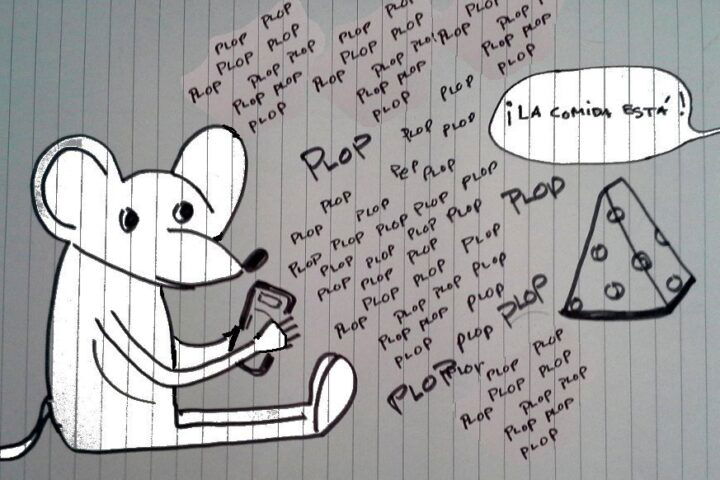 PLOP PLOP
PLOP PLOP
PLOP PLOP PLOP
PLOP PLOP
PLOP
PLOP PLOP
PLOP PLOP
PLOP PLOP PLO
PLOP PLOP
PLOP
PLOP
PLOP PLOP
PLOP PLOP
PLOP
¡LA COMIDA ESTÁ!
PLOP
PLOP PLOP
PLOP
PEP PLOP PLOP
PLOP
PLOP PLOP PLOP PLOP
PLOP PLOP PLOP PLOP PLOP
PLOP PLOP PLOP PLOP
PLOP PLOP PLOP PLOP
PLOP PLOP PLOP PLOP
PLOP
PLOP PLOP PLOP
PLOP PLOP
PLOP PLOP
PLOP PLOP
PLOP PLOP
PLOP PLOP PLOP
PLOP PLOP
PLOP